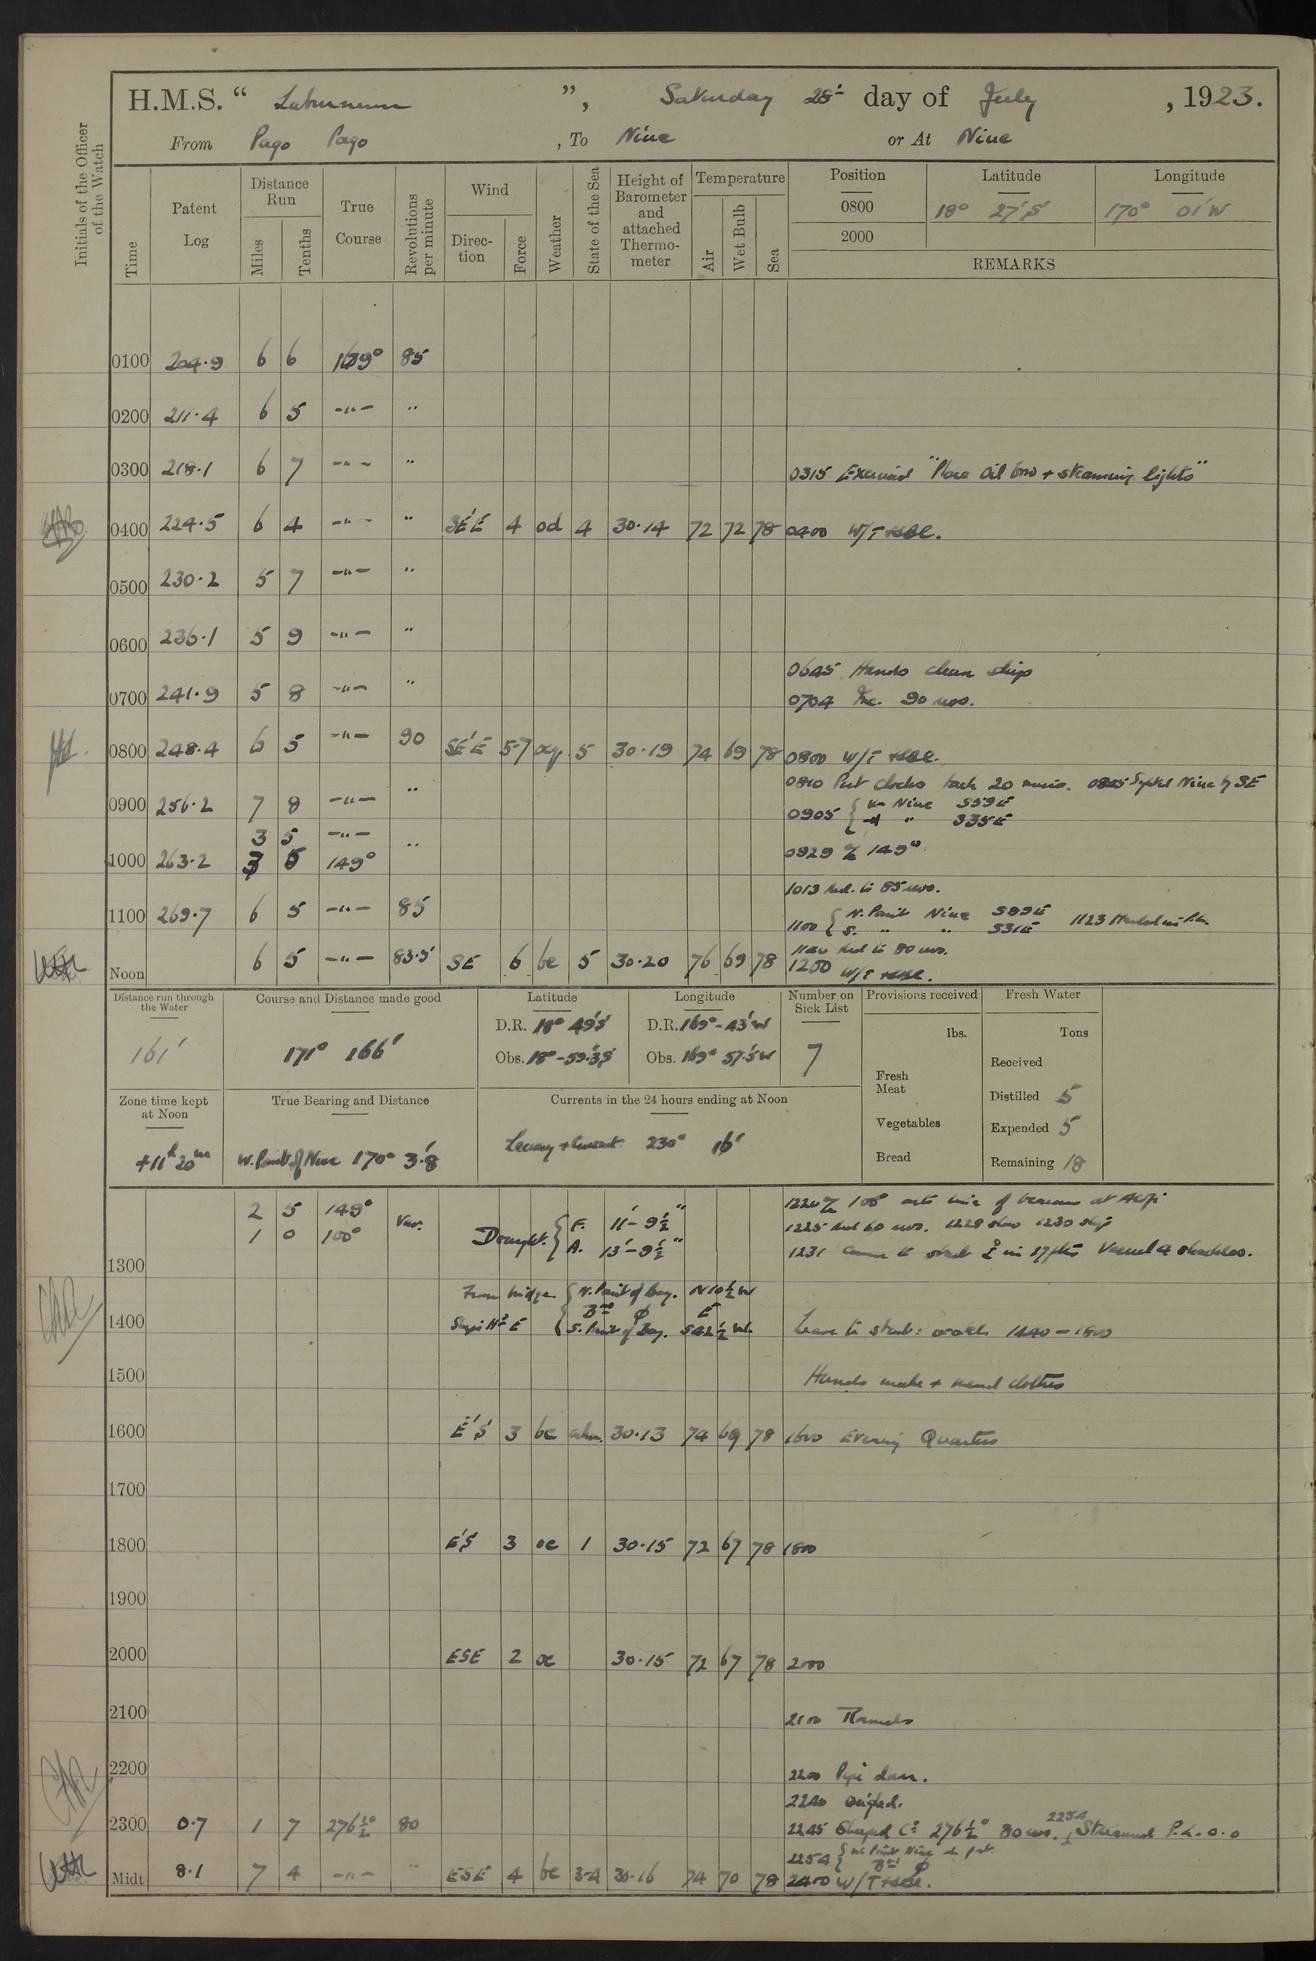 H.M.S. " Laburnum ", Saturday 28th day of July, 1923.
From Pago Pago, To Niue or At Niue
Initials of the Officer of the Watch
Time
Patent Log
Distance Run
Miles
Tenths
True Course
Revolutions per minute
Wind
Direction
Force
Weather
State of the Sea
Height of Barometer and attached Thermometer
Temperature
Air
Wet Bulb
Sea
Position Latitude Longitude
0800 18° 27'S 170° 01'W
2000
REMARKS
0100 204.9 6 6 85
0200 211.4 6 5 -"- "
0300 218.1 6 7 -"- "
0315 Exercised "Place oil bow + steaming lights"
0400 224.5 6 4 -"- " SE'E 4 od 4 30.14 72 72 78 0400 W/T
0500 230.2 5 7 -"- "
0600 236.1 5 9 -"- "
0645 Hands clean ship
0700 241.9 5 8 -"- "
0704 Inc. 90 revs.
0800 248.4 6 5 -"- 90 SE'E 5-7 oq 5 30.19 74 69 78 0800 W/T
0810 Put clocks back 20 mins. Niue SE
0900 256.2 7 8 -"- "
0905 { Niue S59E
" S35E
3 5 -"- "
1000 263.2 3 5 149°
0929 % 149°
1013 Red. to 85 revs.
1100 269.7 6 5 -"- 85
1100 { N. Point Niue S89E
S. " " S31E 1123 Hauled in P.L.
1140 Red to 80 revs.
Noon 6 5 -"- 83.5 SE 6 bc 5 30.20 76 69 78 1200 W/T
Distance run through the Water
161'
Course and Distance made good
171° 166'
Latitude
D.R. 18° 49'S
Obs. 18°-59.3'S
Longitude
D.R. 169°-43'W
Obs. 169° 57.5'W
Number on Sick List
7
Provisions received
lbs.
Fresh Meat
Vegetables
Bread
Fresh Water
Tons
Received
Distilled 5
Expended 5
Remaining 18
Zone time kept at Noon
+11h 20m
True Bearing and Distance
W. Point of Niue 170° 3'.8
Currents in the 24 hours ending at Noon
Leeway + Current 230° 16'
2 5 149° Var.
1 0 100°
Draught. { F. 11'-9½"
A. 13'-9½"
1220 % 100° onto line of beacons at
1225 Red 60 revs. 1228 slow 1230 stop
1300
1231 Came to starbd in 17 fms Veered 4 shackles.
From bridge { N. Point of Bay. N10½W
Bn φ E
Ships Hd E { S. Point of Bay. S42½W.
1400
Leave to starbd: watch 1440 - 1800
1500
Hands make + mend clothes
1600 E'S 3 bc calm. 30.13 74 69 78 1600 Evening Quarters
1700
1800 E'S 3 oc 1 30.15 72 67 78 1800
1900
2000 ESE 2 oc 30.15 72 67 78 2000
2100
2100 Rounds
2200
2200 Pipe down.
2240 Weighed.
2300 0.7 1 7 276½° 80
2245 Shaped Co 276½° 80 revs. 2254 Streamed P.L. 0.0
2254 { W. Point Niue
Bn φ
Midt 8.1 7 4 -"- " ESE 4 bc 3-4 30.16 74 70 78 2400 W/T